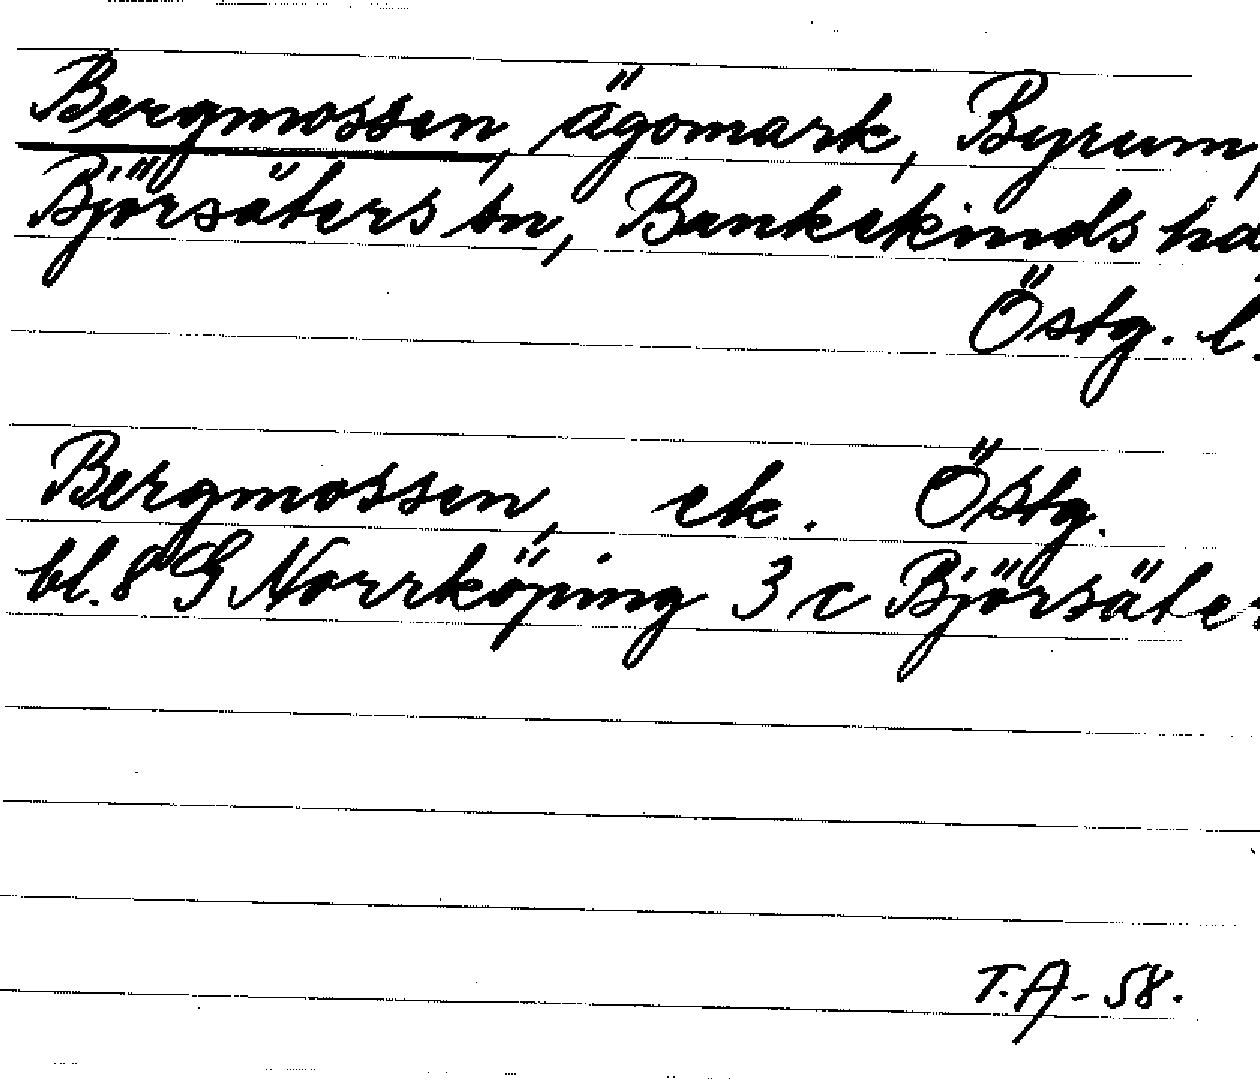 Bergmossen, ägomark, Byrum,
Björsäters sn, Bankekinds hd
Östg. l.
Bergmossen, ek. Östg.
bl. 8 G Norrköping 3 c Björsäter
T.A-58.